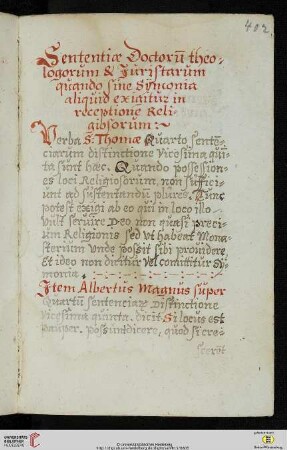 402.
Sententiæ Doctorũ theo-
logorum & Juristarum
quando sine Symonia
aliquid exigitur in
receptione Reli-
giosorum:~
Verba S: Thomæ Quarto senten-
ciarum distinctione Vicesima quĩ-
ta sunt hæc. Quando possession-
es loci Religiosorum, non suffici-
unt ad sustentandũ plures. Tunc
potest exigi ab eo qui in loco illo
vult servire Deo non quasi preci-
um Religionis sed ut habeat Mona-
sterium unde possit sibi providere,
et ideo non dicitur vel comittitur Sy-
monia
Item Albertus Magnus super
Quartũ sententiarum Distinctione
vicesima quinta. dicit. Si locus est
pauper. possunt dicere, quod si cre-
scerẽt
UNIVERSITÄTS-
BIBLIOTHEK
HEIDELBERG
© Universitätsbibliothek Heidelberg